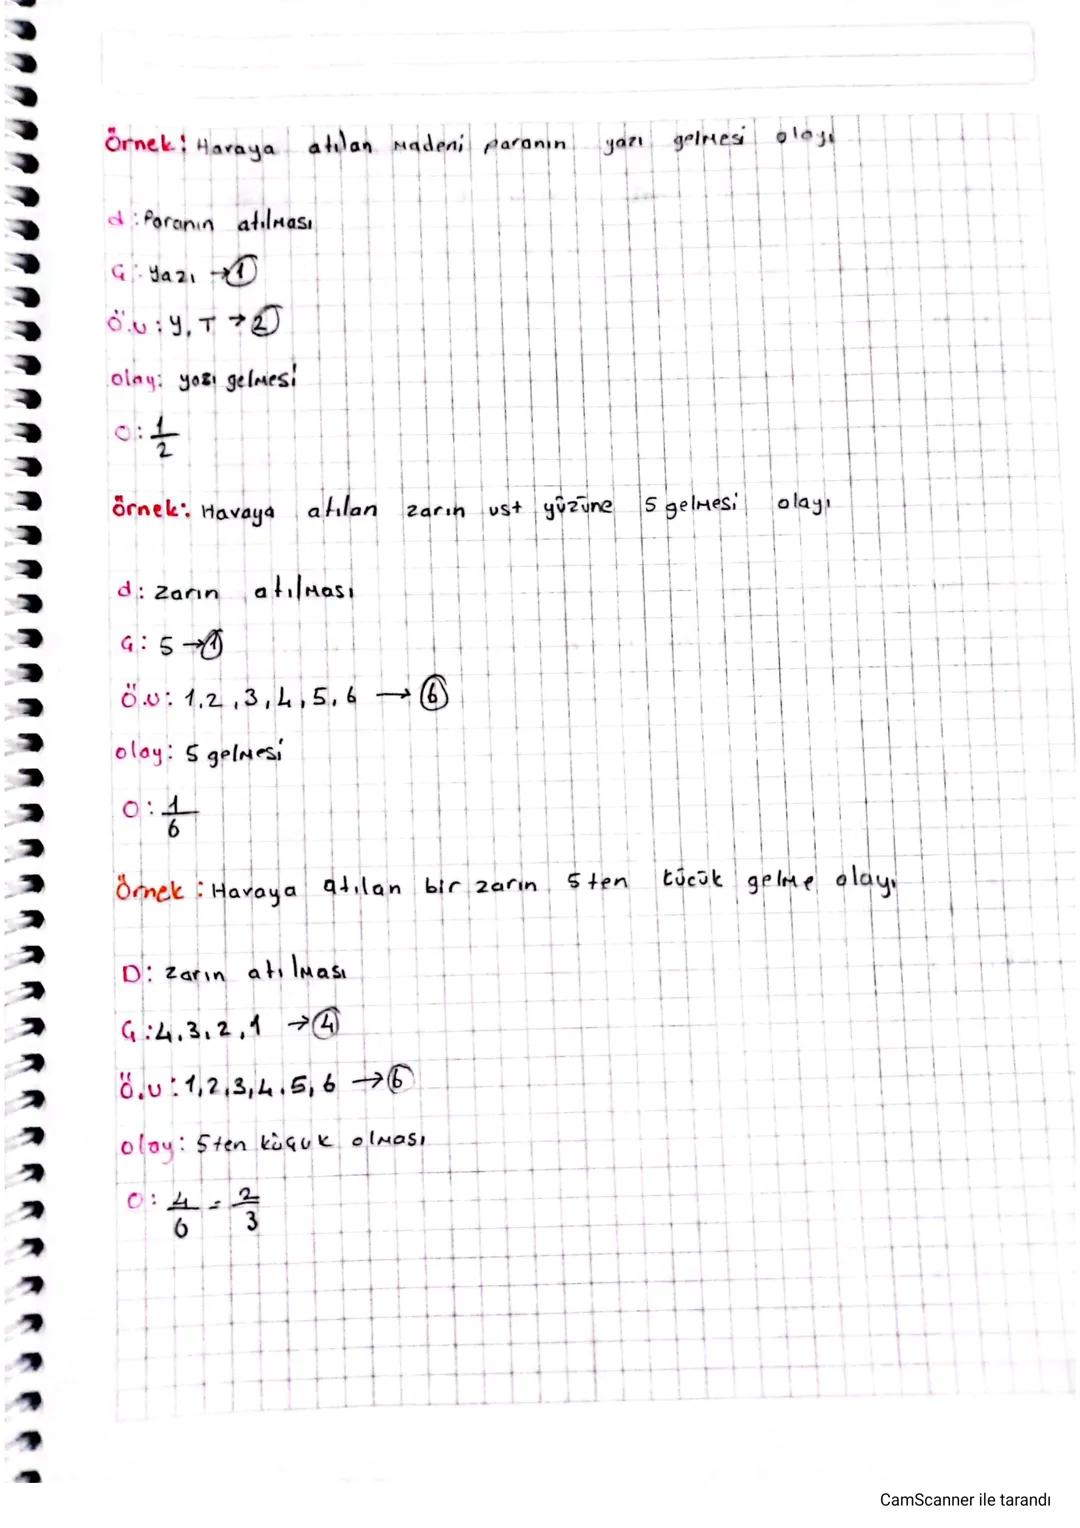 Örnek: Havaya atılan madeni paranın yazı gelmesi olayı
d: Paranın atılması
G: Yazı → 1
Ö.U: Y, T → 2
olay: yazı gelmesi
O: 1/2
örnek: Havaya atılan zarın ust yüzüne 5 gelmesi olayı
d: Zarın atılması
G: 5 → 1
Ö.U: 1,2,3,4,5,6 → 6
olay: 5 gelmesi
O: 1/6
Örnek: Havaya atılan bir zarın 5ten kücük gelme olayı
D: Zarın atılması
G: 4,3,2,1 → 4
Ö.U: 1,2,3,4,5,6 → 6
olay: 5ten küçuk olması
O: 4/6 = 2/3
CamScanner ile tarandı